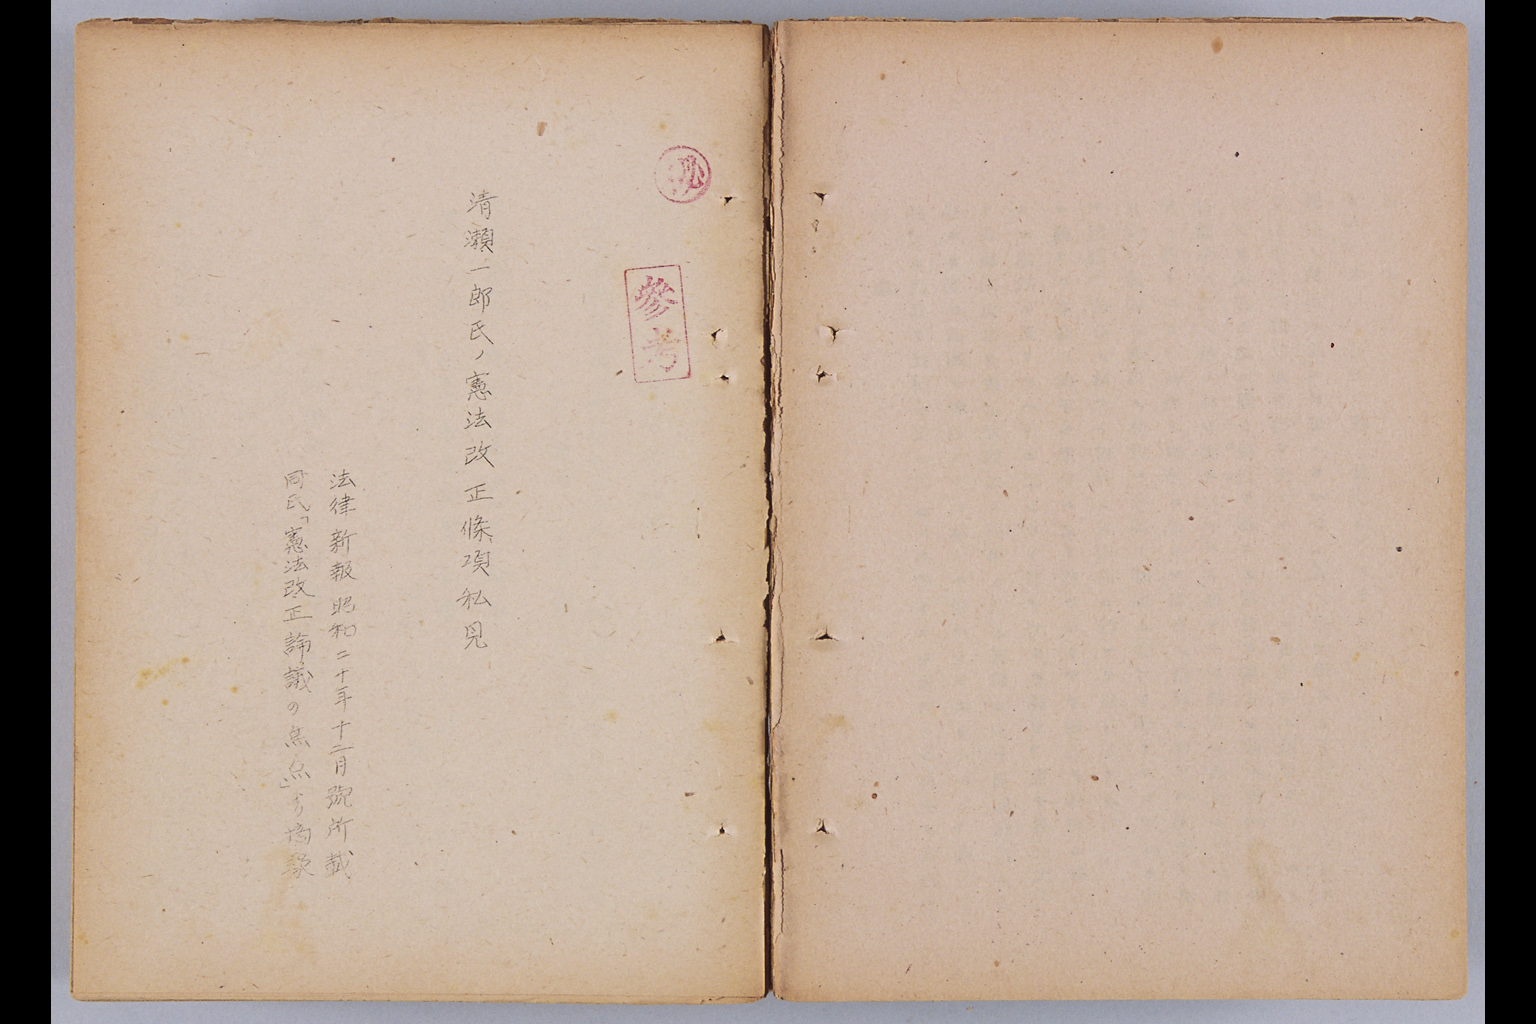 秘
參考
清瀬一郎氏ノ憲法改正條項私見
法律新報昭和二十年十二月號所載
同氏「憲法改正論議の焦点」ヨリ摘録